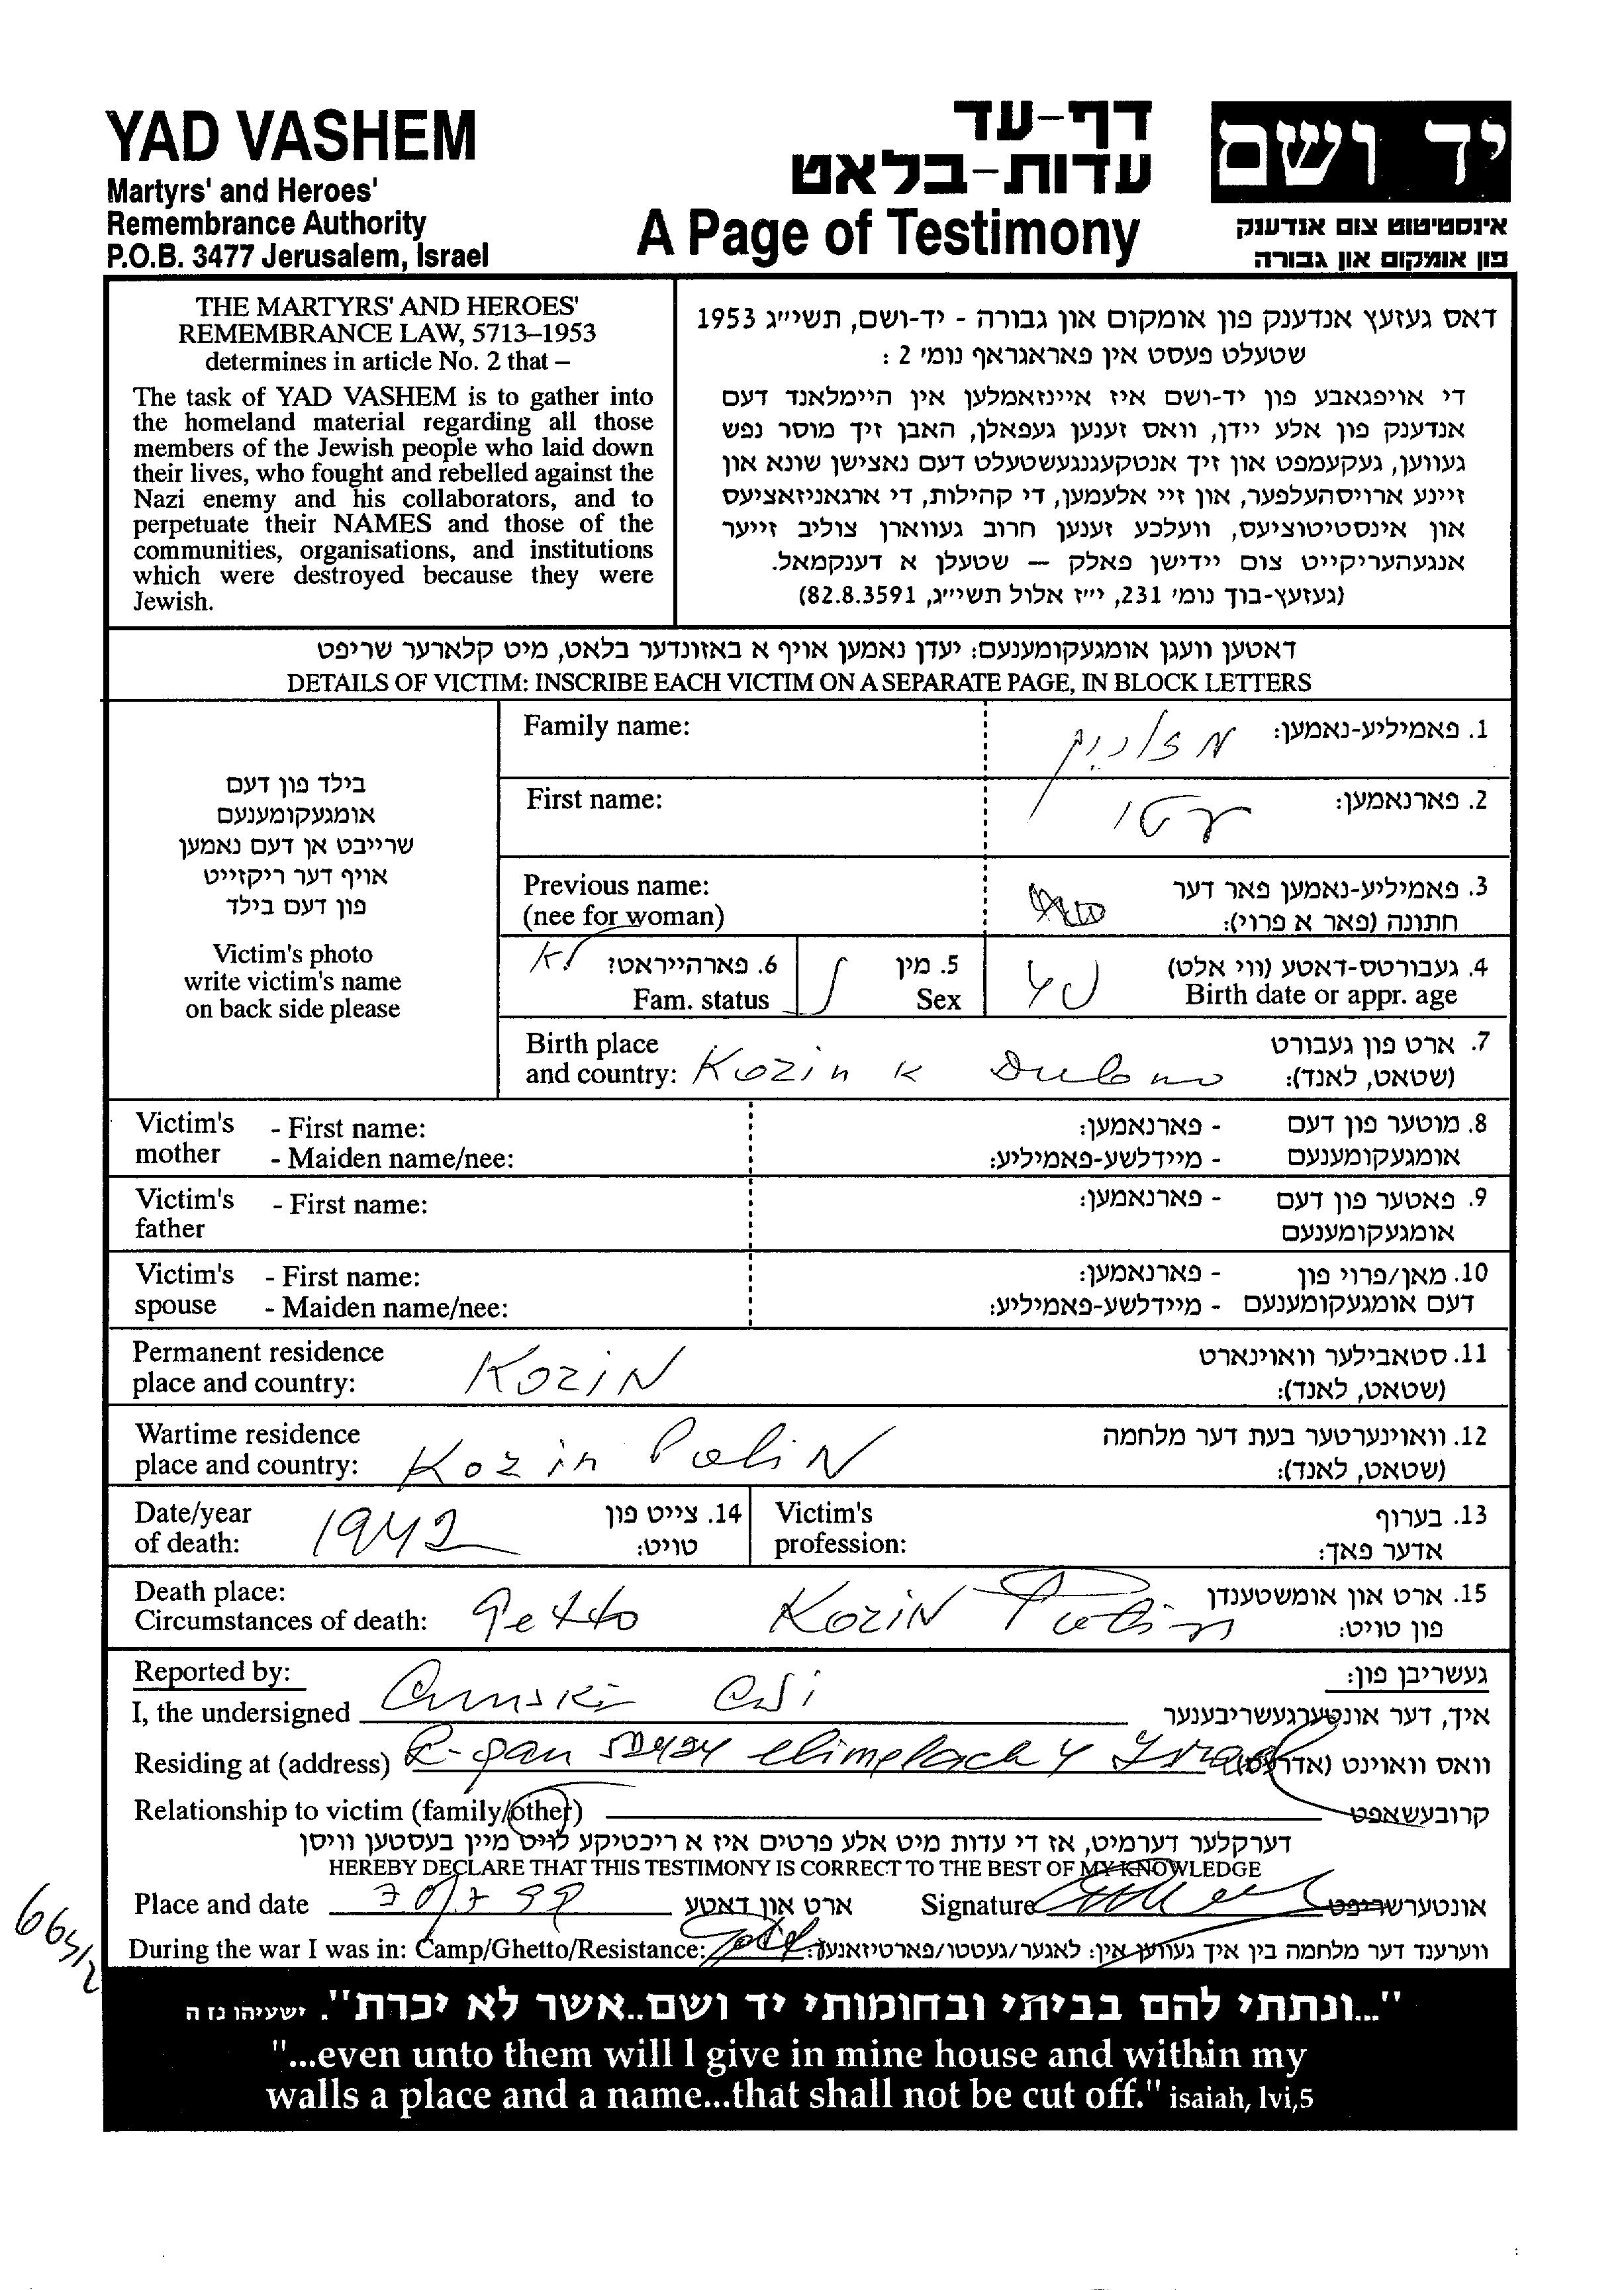 YAD VASHEM
Martyrs' and Heroes'
Remembrance Authority
P.O.B. 3477 Jerusalem, Israel
דף-עד
עדות-בלאט
A Page of Testimony
יד ושם
אינסטיטוט צום אנדענק
פון אומקום און גבורה
THE MARTYRS' AND HEROES'
REMEMBRANCE LAW, 5713–1953
determines in article No. 2 that –
The task of YAD VASHEM is to gather into
the homeland material regarding all those
members of the Jewish people who laid down
their lives, who fought and rebelled against the
Nazi enemy and his collaborators, and to
perpetuate their NAMES and those of the
communities, organisations, and institutions
which were destroyed because they were
Jewish.
דאס געזעץ אנדענק פון אומקום און גבורה - יד-ושם, תשי״ג 1953
שטעלט פעסט אין פאראגראף נומ׳ 2 :
די אויפגאבע פון יד-ושם איז איינזאמלען אין היימלאנד דעם
אנדענק פון אלע יידן, וואס זענען געפאלן, האבן זיך מוסר נפש
געווען, געקעמפט און זיך אנטקעגנגעשטעלט דעם נאצישן שונא און
זיינע ארויסהעלפער, און זיי אלעמען, די קהילות, די ארגאניזאציעס
און אינסטיטוציעס, וועלכע זענען חרוב געווארן צוליב זייער
אנגעהעריקייט צום יידישן פאלק — שטעלן א דענקמאל.
(געזעץ-בוך נומ׳ 231, י״ז אלול תשי״ג, 82.8.3591)
דאטען וועגן אומגעקומענעם: יעדן נאמען אויף א באזונדער בלאט, מיט קלארער שריפט
DETAILS OF VICTIM: INSCRIBE EACH VICTIM ON A SEPARATE PAGE, IN BLOCK LETTERS
בילד פון דעם
אומגעקומענעם
שרייבט אן דעם נאמען
אויף דער ריקזייט
פון דעם בילד
Victim's photo
write victim's name
on back side please
Family name:
1. פאמיליע-נאמען:
First name:
2. פארנאמען:
Previous name:
(nee for woman)
3. פאמיליע-נאמען פאר דער
חתונה (פאר א פרוי):
6. פארהייראט?
Fam. status
5. מין
Sex
4. געבורטס-דאטע (ווי אלט)
Birth date or appr. age
Birth place
and country: Kozin k Dubno
7. ארט פון געבורט
(שטאט, לאנד):
Victim's - First name:
mother - Maiden name/nee:
8. מוטער פון דעם - פארנאמען:
אומגעקומענעם - מיידלשע-פאמיליע:
Victim's - First name:
father
9. פאטער פון דעם - פארנאמען:
אומגעקומענעם
Victim's - First name:
spouse - Maiden name/nee:
10. מאן/פרוי פון - פארנאמען:
דעם אומגעקומענעם - מיידלשע-פאמיליע:
Permanent residence
place and country: KoziN
11. סטאבילער וואוינארט
(שטאט, לאנד):
Wartime residence
place and country: Kozin PoliN
12. וואוינערטער בעת דער מלחמה
(שטאט, לאנד):
Date/year
of death: 1942
14. צייט פון
טויט:
Victim's
profession:
13. בערוף
אדער פאך:
Death place:
Circumstances of death: Getto KoziN Polin
15. ארט און אומשטענדן
פון טויט:
Reported by:
געשריבן פון:
I, the undersigned
איך, דער אונטערגעשריבענער
Residing at (address) R-gan elimelach 4 Israel
וואס וואוינט
Relationship to victim (family/other)
קרובעשאפט
דערקלער דערמיט, אז די עדות מיט אלע פרטים איז א ריכטיקע לויט מיין בעסטען וויסן
HEREBY DECLARE THAT THIS TESTIMONY IS CORRECT TO THE BEST OF MY KNOWLEDGE
Place and date
ארט און דאטע
Signature
אונטערשריפט
During the war I was in: Camp/Ghetto/Resistance:
ווערענד דער מלחמה בין איך געווען אין: לאגער/געטטו/פארטיזאנער:
664/2
"...ונתתי להם בביתי ובחומותי יד ושם..אשר לא יכרת". ישעיהו נז ה
"...even unto them will I give in mine house and within my
walls a place and a name...that shall not be cut off." isaiah, lvi,5